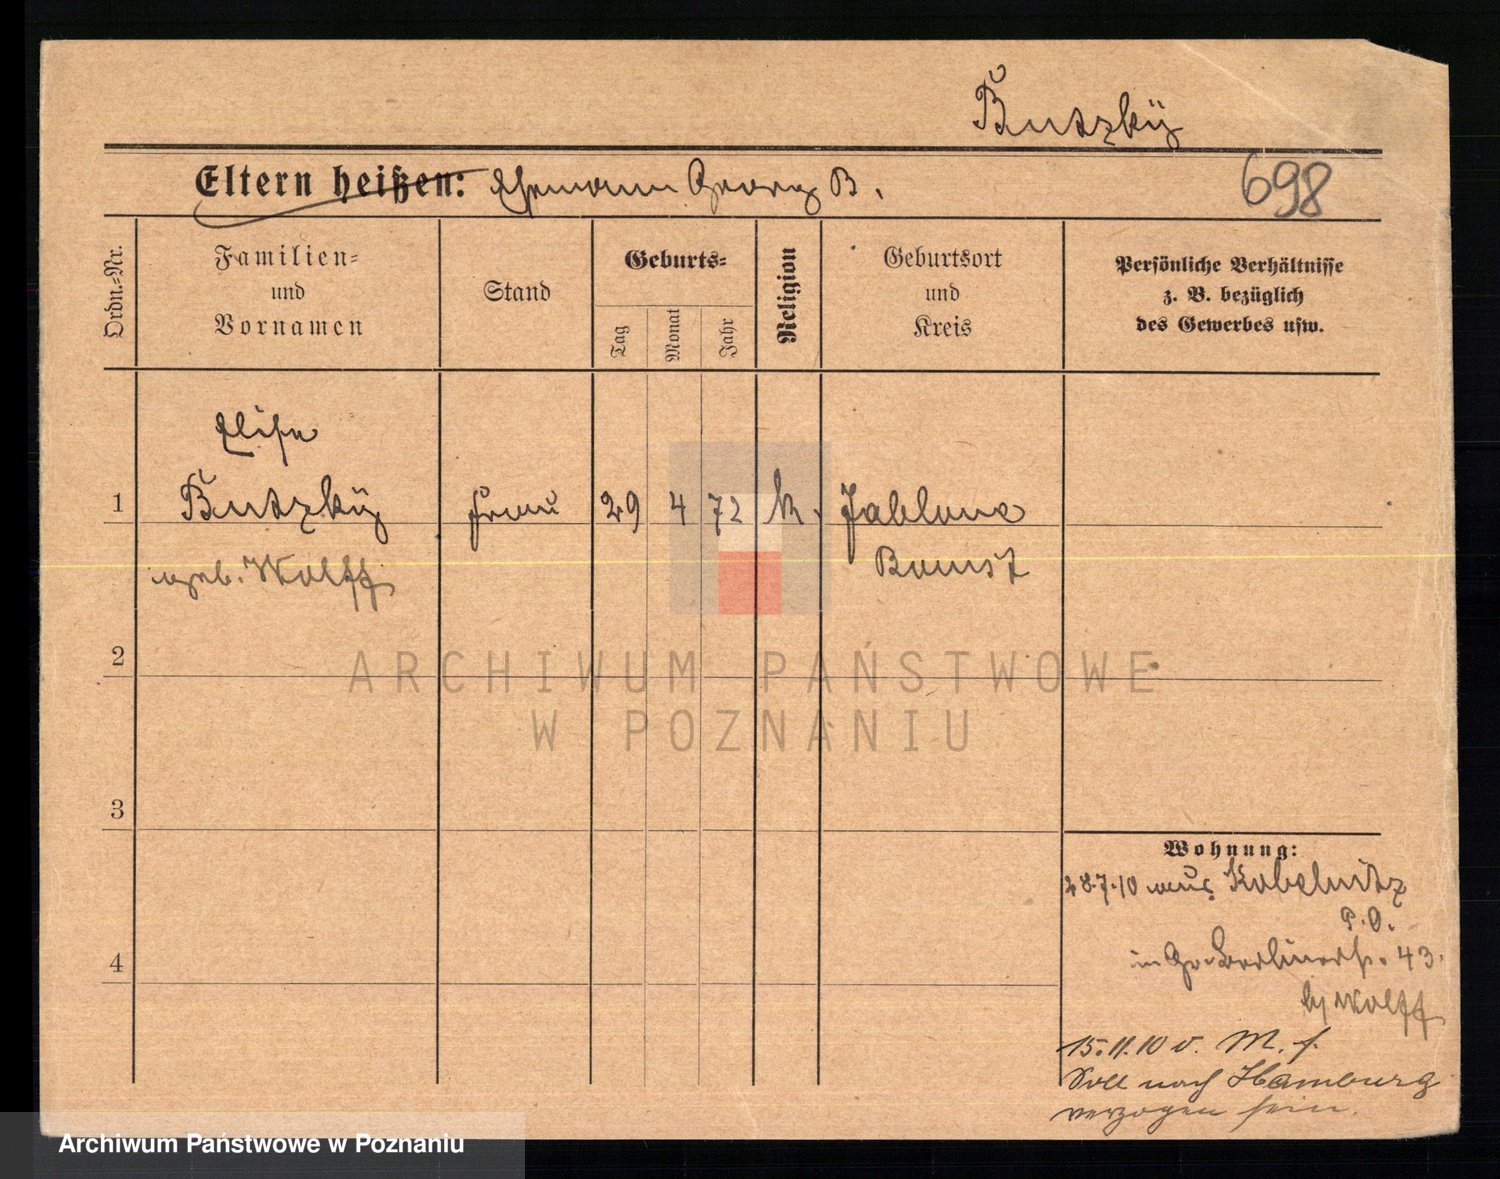 Butzky
Eltern heißen: Ehemann Georg B.
698
Ordn.-Nr.
Familien-
und
Vornamen
Stand
Geburts-
Tag
Monat
Jahr
Religion
Geburtsort
und
Kreis
Persönliche Verhältnisse
z. B. bezüglich
des Gewerbes usw.
Elise
1 Butzky Frau 29 4 72 k. Jablone
geb. Wolff Bomst
2
3
4
Wohnung:
28.7.10 aus Kobelnitz
P. O.
in Gr. Berlinerstr. 43.
by Wolff
15.11.10 v. M. f.
Soll nach Hamburg
verzogen sein.
ARCHIWUM PAŃSTWOWE
W POZNANIU
Archiwum Państwowe w Poznaniu